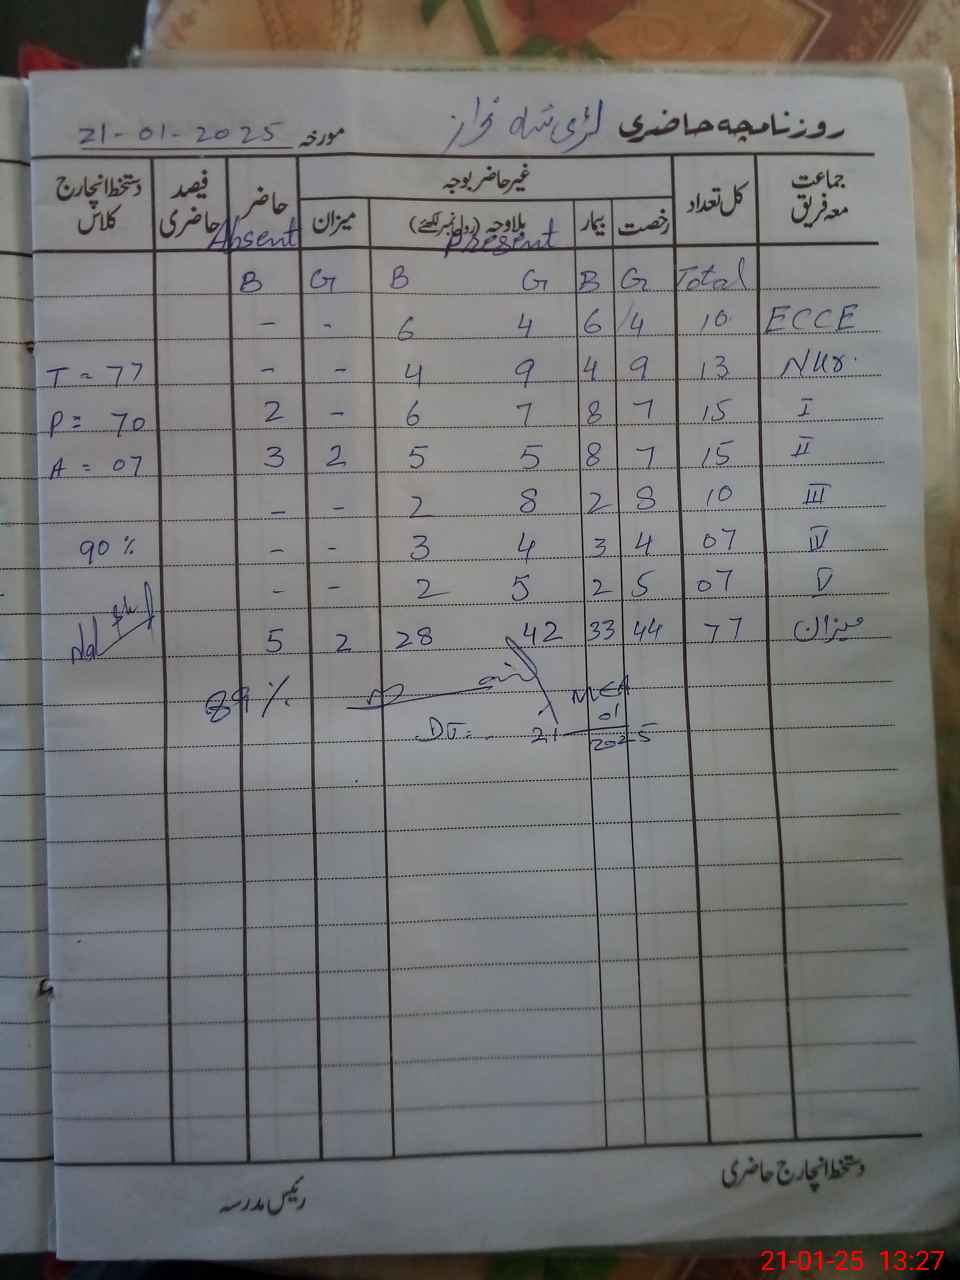 روزنامچہ حاضری لنڈی شاہ نواز مورخہ 21-01-2025
جماعت معہ فریق کل تعداد غیر حاضر بوجہ حاضر فیصد حاضری دستخط انچارج کلاس
رخصت بیمار بلاوجہ (رول نمبر لکھئے) میزان
Present Absent
B G B G B G Total
- - 6 4 6 4 10 ECCE
T = 77 - - 4 9 4 9 13 Nur.
P = 70 2 - 6 7 8 7 15 I
A = 07 3 2 5 5 8 7 15 II
- - 2 8 2 8 10 III
90 % - - 3 4 3 4 07 IV
- - 2 5 2 5 07 V
5 2 28 42 33 44 77 میزان
89 % MEA
DT:- 21 01 2025
دستخط انچارج حاضری
رئیس مدرسہ
21-01-25 13:27